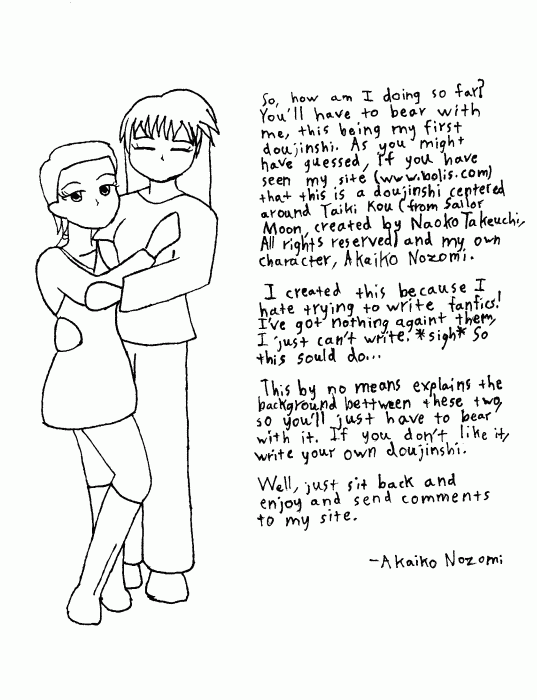 So, how am I doing so far?
You'll have to bear with
me, this being my first
doujinshi. As you might
have guessed, if you have
seen my site (www.bolis.com)
that this is a doujinshi centered
around Taiki Kou (from Sailor
Moon, created by Naoko Takeuchi,
All rights reserved) and my own
character, Akaiko Nozomi.
I created this because I
hate trying to write fanfics!
I've got nothing againt them,
I just can't write. *sigh* So
this sould do...
This by no means explains the
background bettween these two,
so you'll just have to bear
with it. If you don't like it,
write your own doujinshi.
Well, just sit back and
enjoy and send comments
to my site.
-Akaiko Nozomi